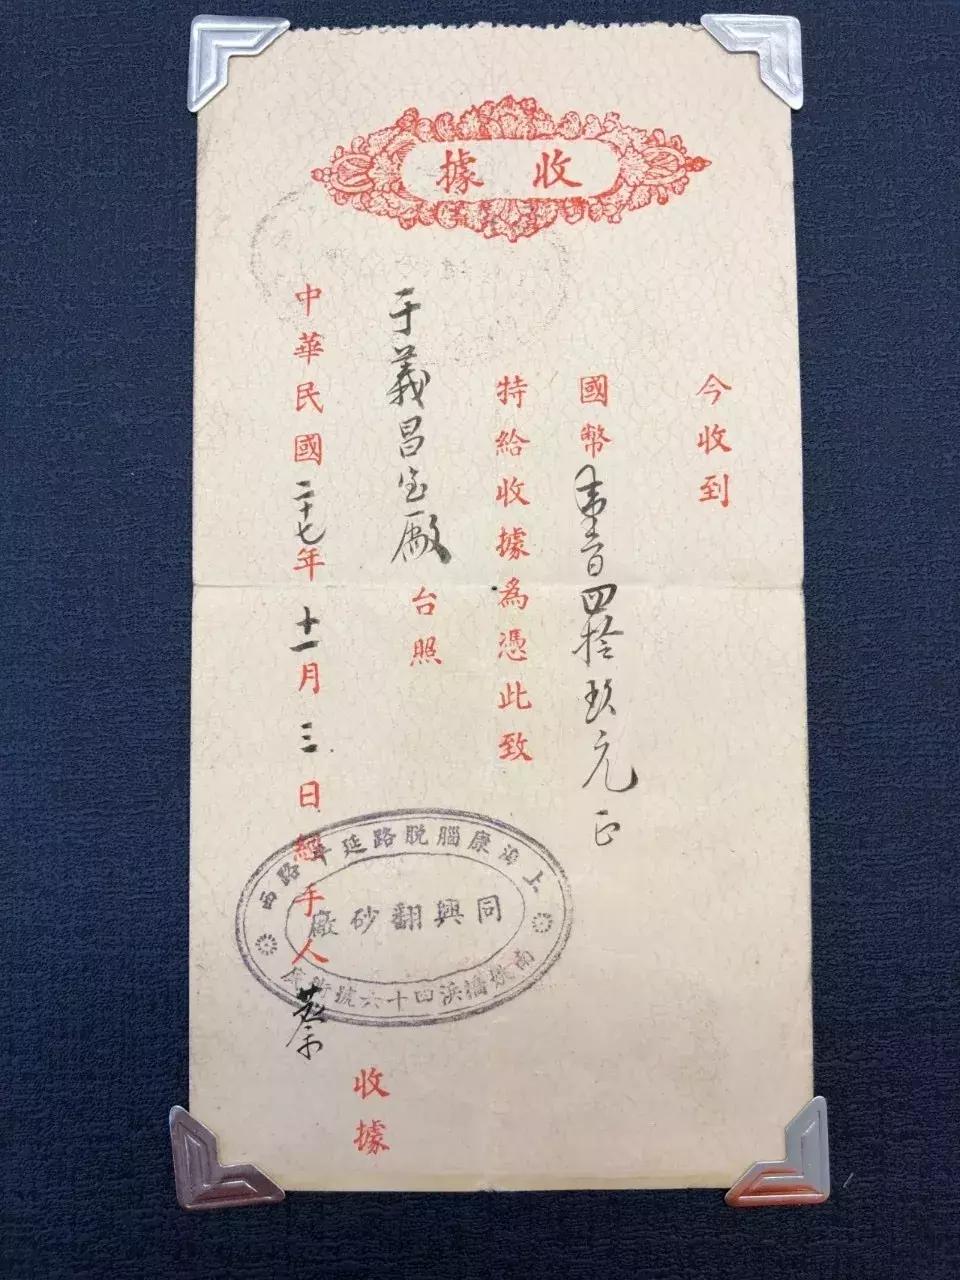 收據
今收到
國幣壹百四拾玖元正
特給收據為憑此致
于義昌宝廠台照
中華民國二十七年十一月三日經手人蔡
收據
上海康腦脫路延平路西
同興翻砂廠
浜四十六號